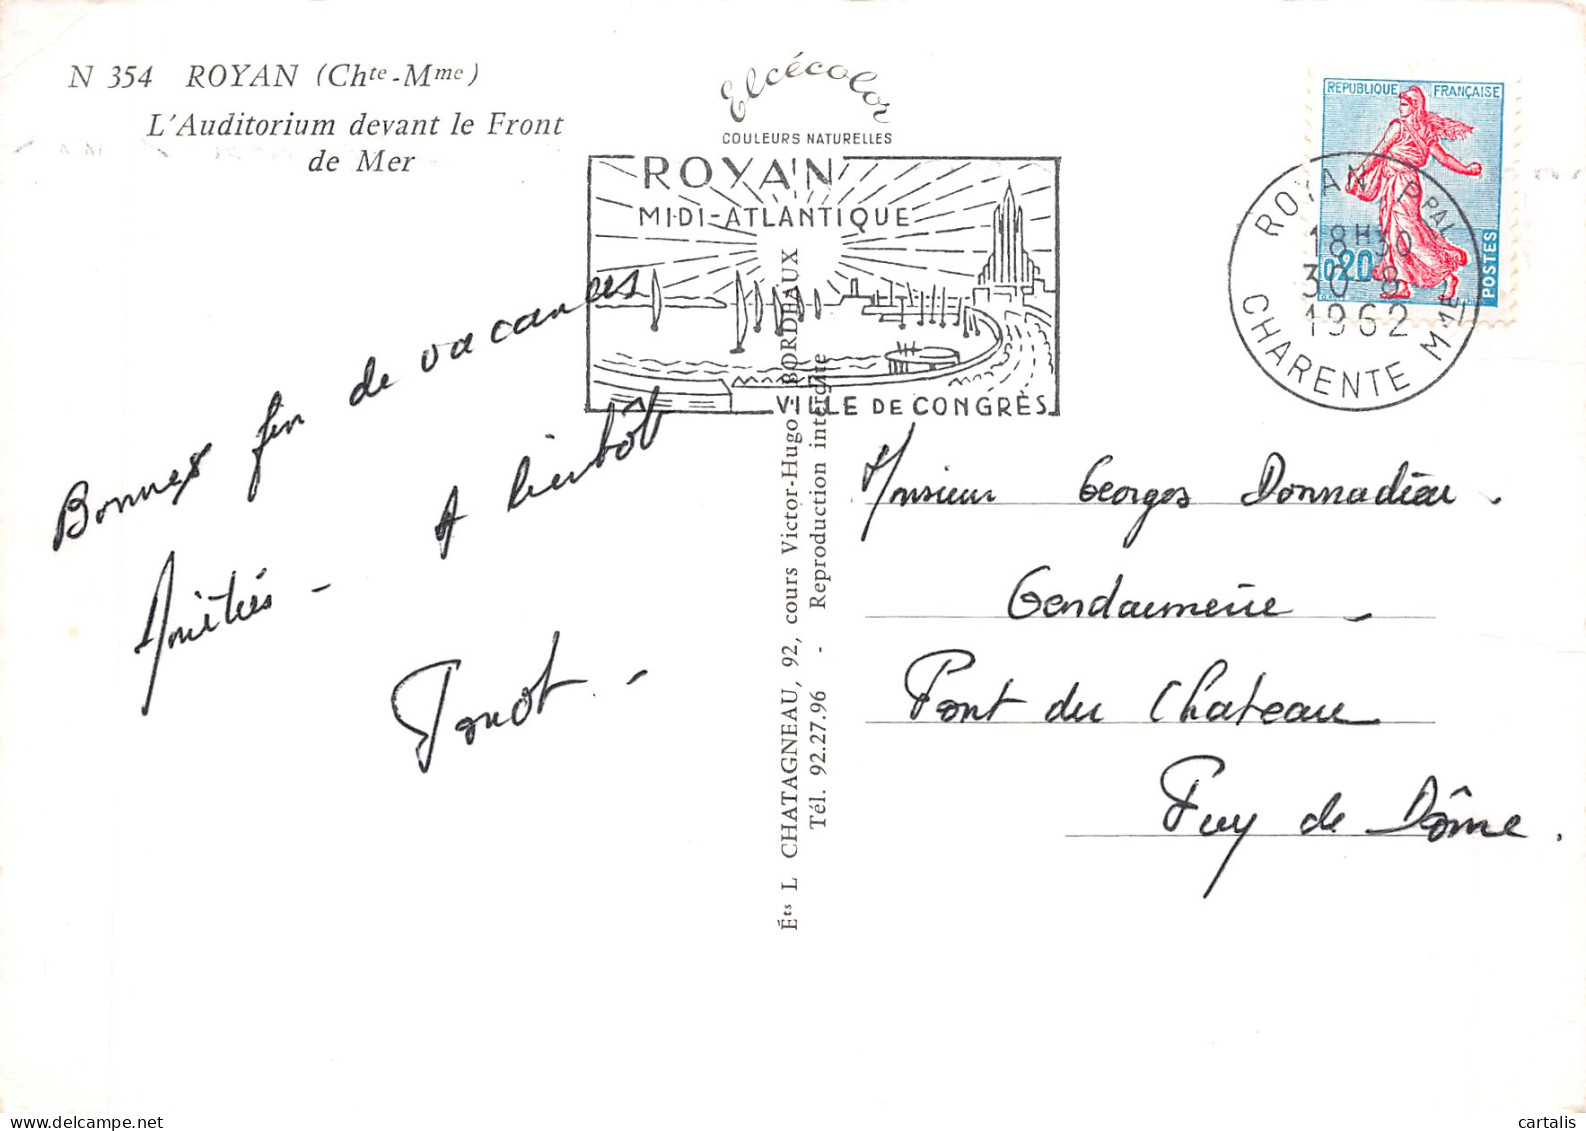 N 354 ROYAN (Chte-Mme)
L'Auditorium devant le Front
de Mer
Elcécolor
COULEURS NATURELLES
ROYAN
MIDI-ATLANTIQUE
VILLE DE CONGRÈS
REPUBLIQUE FRANÇAISE
0,20
POSTES
ROYAN PPAL
18H30
30-8
1962
CHARENTE MME
Bonnes fin de vacances
Amitiés - A bientôt
Éts L CHATAGNEAU, 92, cours Victor-Hugo - BORDEAUX
Tél. 92.27.96 - Reproduction interdite
Monsieur Georges Donnadieu.
Gendarmerie -
Pont du Chateau
Puy de Dôme.
cartalis